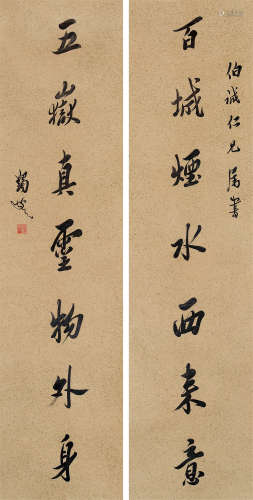 伯誠仁兄屬書
百城煙水西來意
五嶽真靈物外身